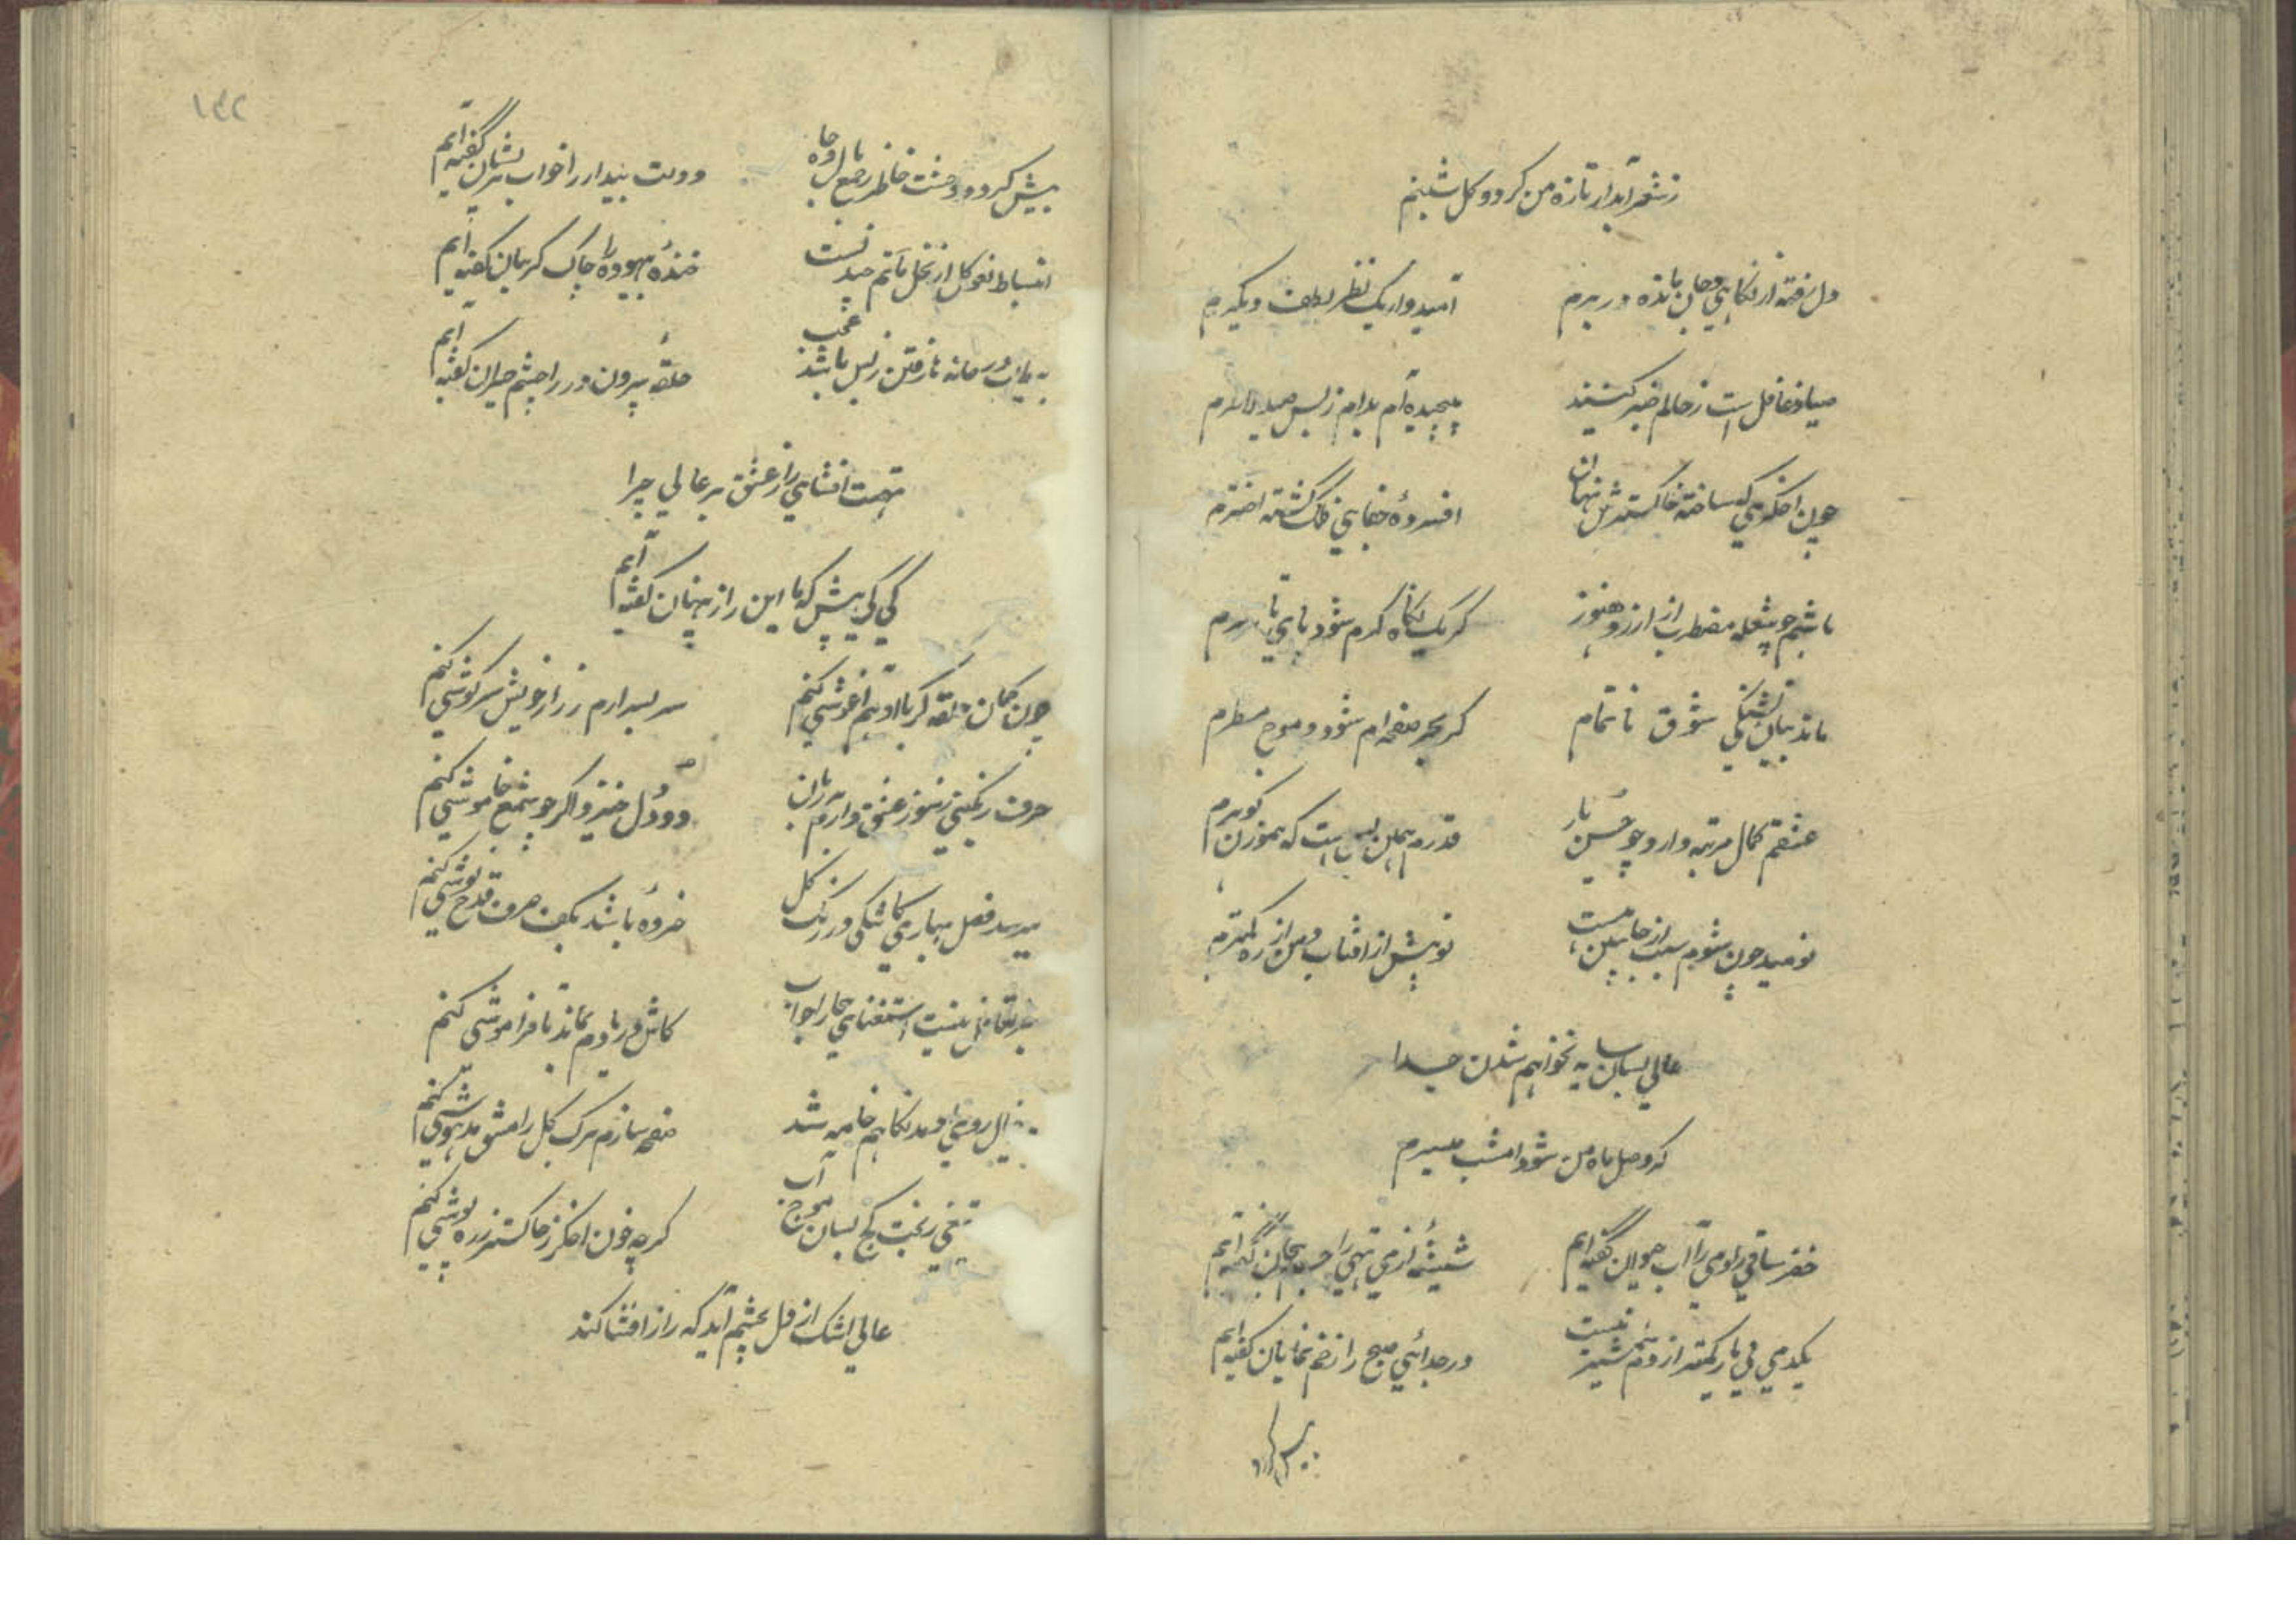 ز شعر آبدار تازه من کردد کل شبنم
دل رفته از نکاهی و جان مانده در برم
امیدوار یک نظر لطف دیکرم
صیاد غافل است ز حالم خبر کنید
پیچیده ام بدام ز بس صید لاغرم
چون اخکری که ساخته خاکسترش نهان
افسرده جفای فلک کشته اخترم
باشم چو شعله مضطرب از آرزو هنوز
کر یک نکاه کرم شود پای تا سرم
ماند بیان تشنکی شوق ناتمام
کر بحر صفحه ام شود و موج مسطرم
عشقم کمال مرتبه دارد چو حسن یار
قدرم همین بس است که هموزن کوهرم
نومید چون شوم سبب از جانبین هست
تو پیش از آفتاب و من از ذره کمترم
عالی بسان سایه نخواهم شدن جدا
کر وصل ماه من شود امشب میسرم
خضر ساقی را و می را آب حیوان گفته ایم
شیشه از می تهی را جسم بیجان گفته ایم
یکدمی بی یار کمتر از دم شمشیر نیست
در جدائی صبح را زخم نمایان کفته ایم
بیش کردد
۱۴۲
بیش کردد وحشت خاطر ز جمع مال و جاه
دولت بیدار را خواب پریشان گفته ایم
انبساط نوکل از نخل ماتم چیدنست
خنده بیهوده را چاک کریبان کفته ایم
خانه نارفتن ز بس باشد عجب
حلقه بیرون در را چشم حیران کفته ایم
تهمت افشای راز عشق بر عالی چرا
کی کی پیش که ما این راز پنهان کفته ایم
چون کمان حلقه کر با او هم آغوشی کنم
سر بسر آرم ز راز خویش سرکوشی کنم
حرف رنکینی ز سوز عشق دارم بر زبان
دود دل خیزد اکر چو شمع خاموشی کنم
میرسد فصل بهاری کاشکی در رنک کل
خرده باشد بکف صرف قدح نوشی کنم
تغافل نیست استغنای را جواب
کاش در یادم بماند تا فراموشی کنم
روی او مد نکاهم خامه شد
صفحه سازم برک کل را مشق مدهوشی کنم
بخت کج بسان موج آب
کر چه خون اخکر ز خاکستر زره پوشی کنم
عالی اشک از دل بچشم آید که راز افشا کند